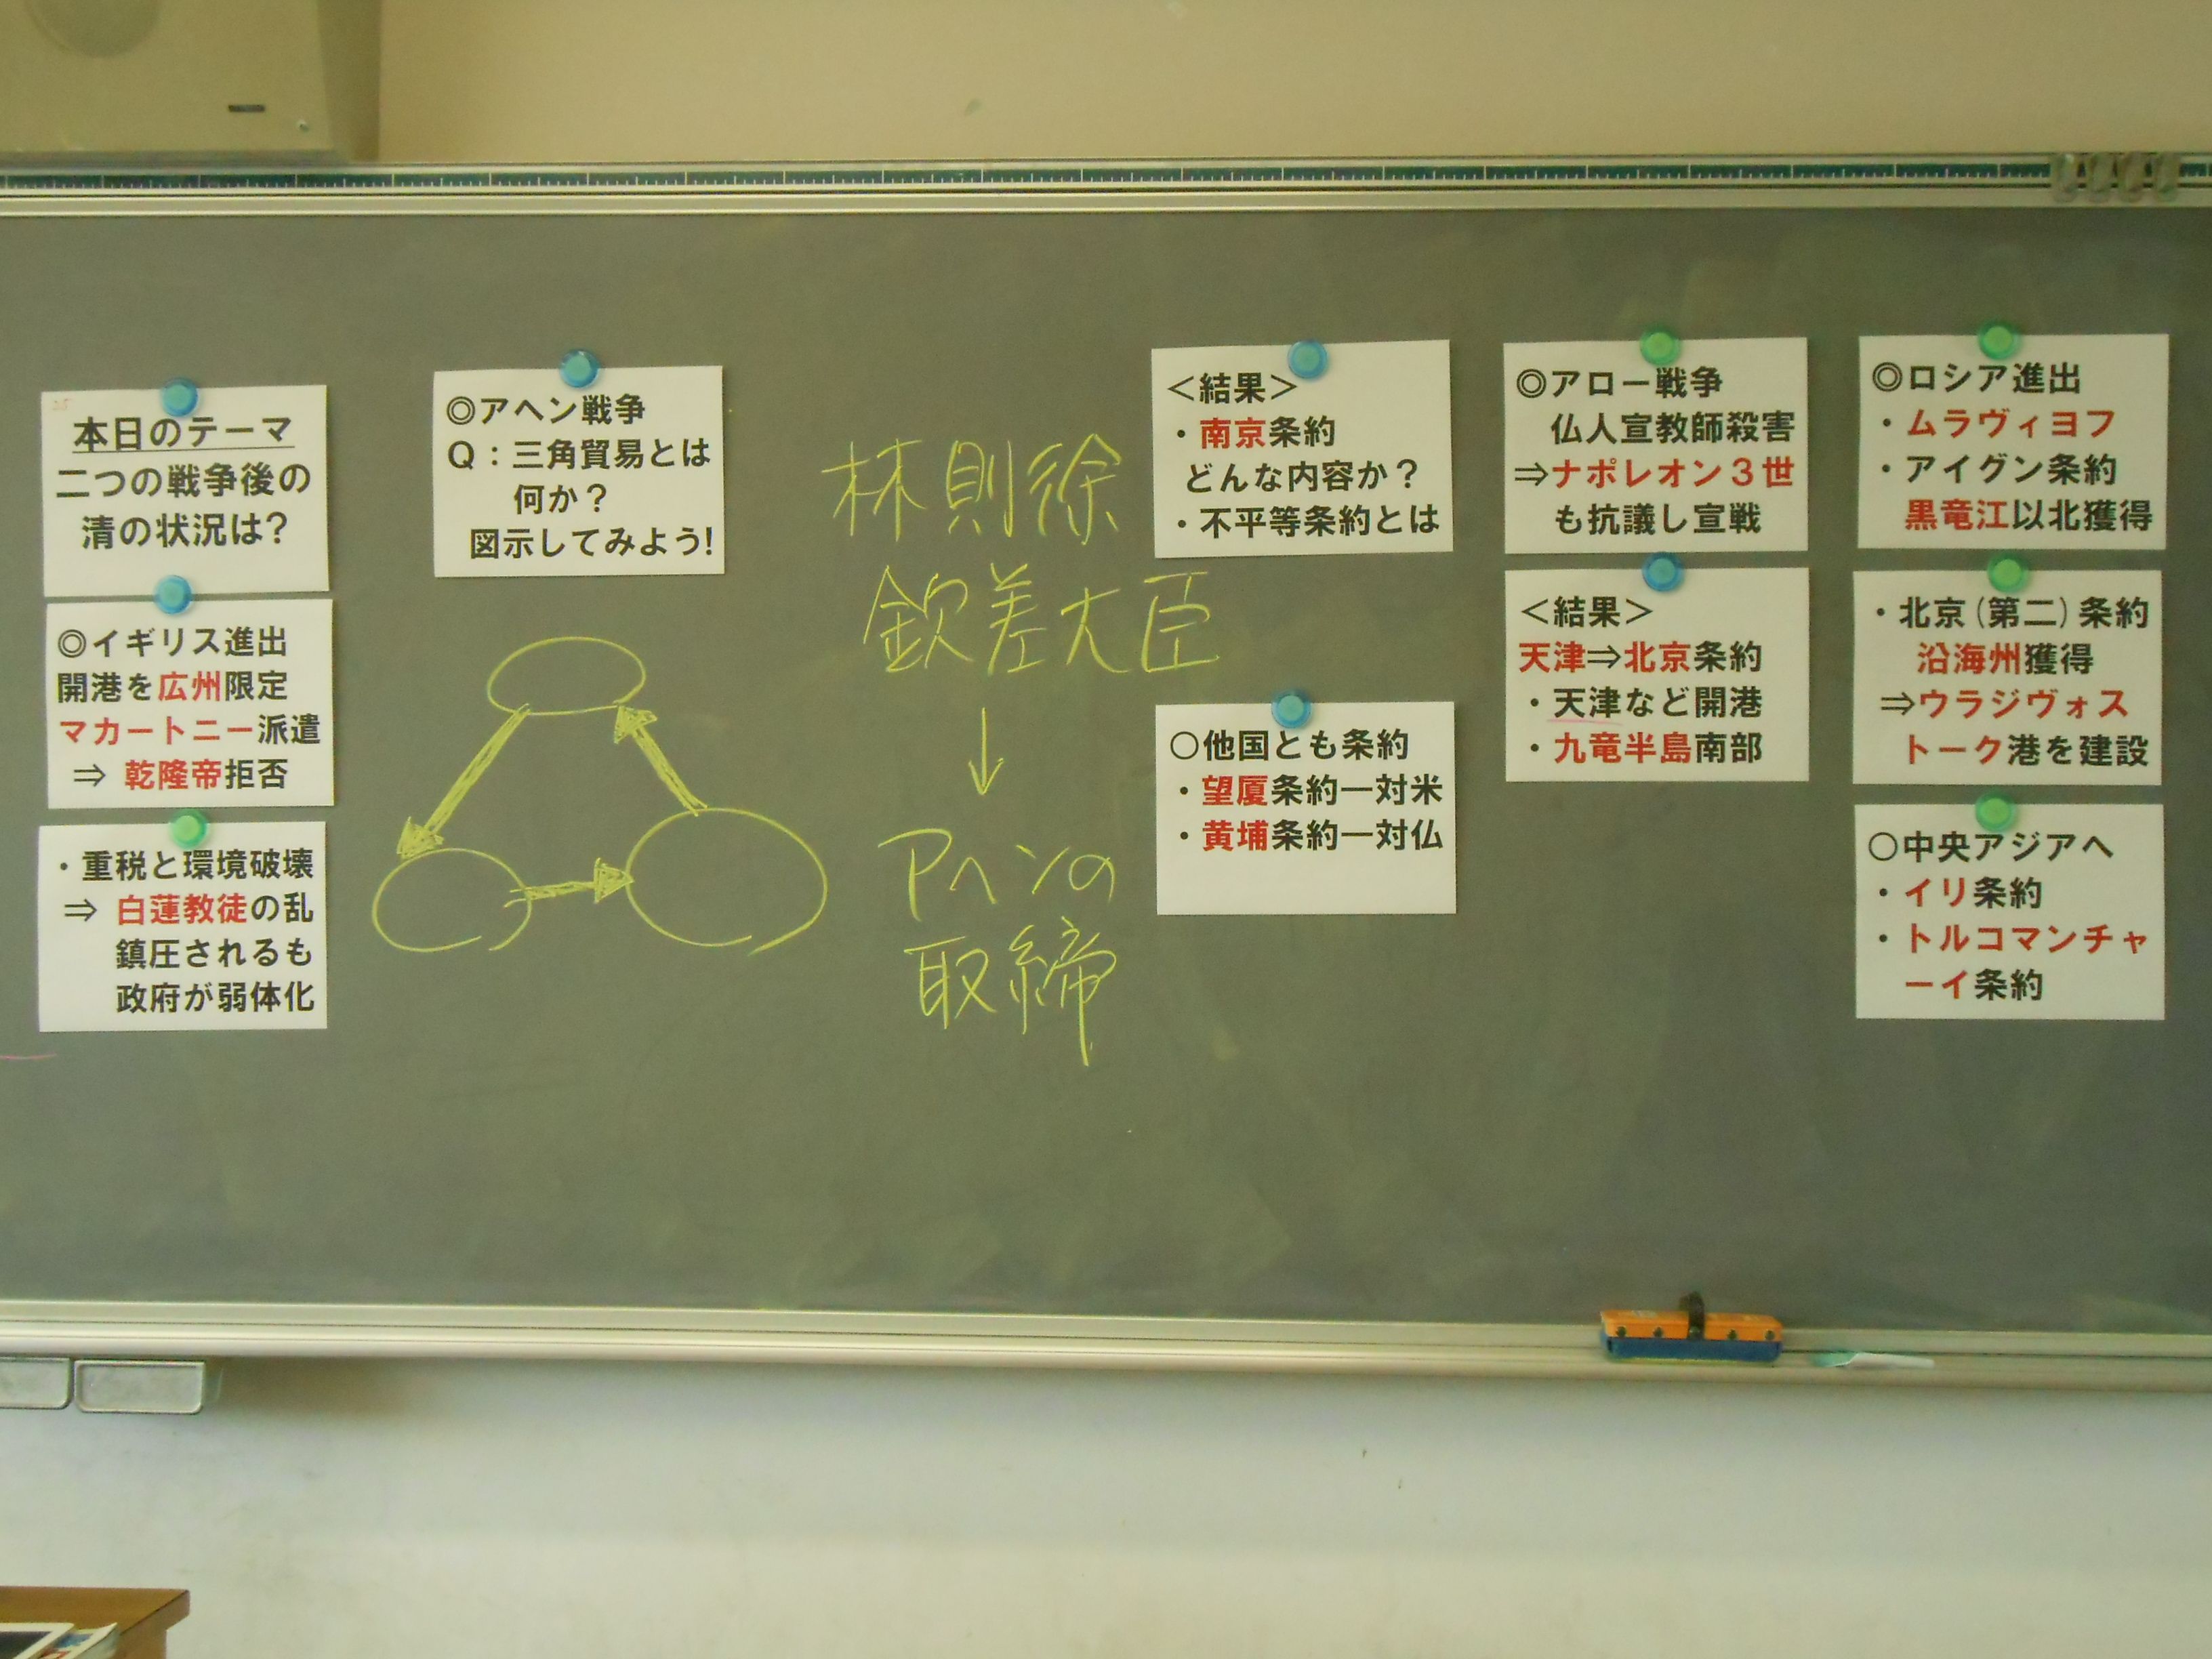 本日のテーマ
二つの戦争後の
清の状況は?
◎イギリス進出
開港を広州限定
マカートニー派遣
⇒ 乾隆帝拒否
・重税と環境破壊
⇒ 白蓮教徒の乱
鎮圧されるも
政府が弱体化
◎アヘン戦争
Q：三角貿易とは
何か？
図示してみよう!
林則徐
欽差大臣
↓
アヘンの
取締
＜結果＞
・南京条約
どんな内容か？
・不平等条約とは
○他国とも条約
・望厦条約―対米
・黄埔条約―対仏
◎アロー戦争
仏人宣教師殺害
⇒ナポレオン３世
も抗議し宣戦
＜結果＞
天津⇒北京条約
・天津など開港
・九竜半島南部
◎ロシア進出
・ムラヴィヨフ
・アイグン条約
黒竜江以北獲得
・北京(第二)条約
沿海州獲得
⇒ウラジヴォス
トーク港を建設
○中央アジアへ
・イリ条約
・トルコマンチャ
ーイ条約